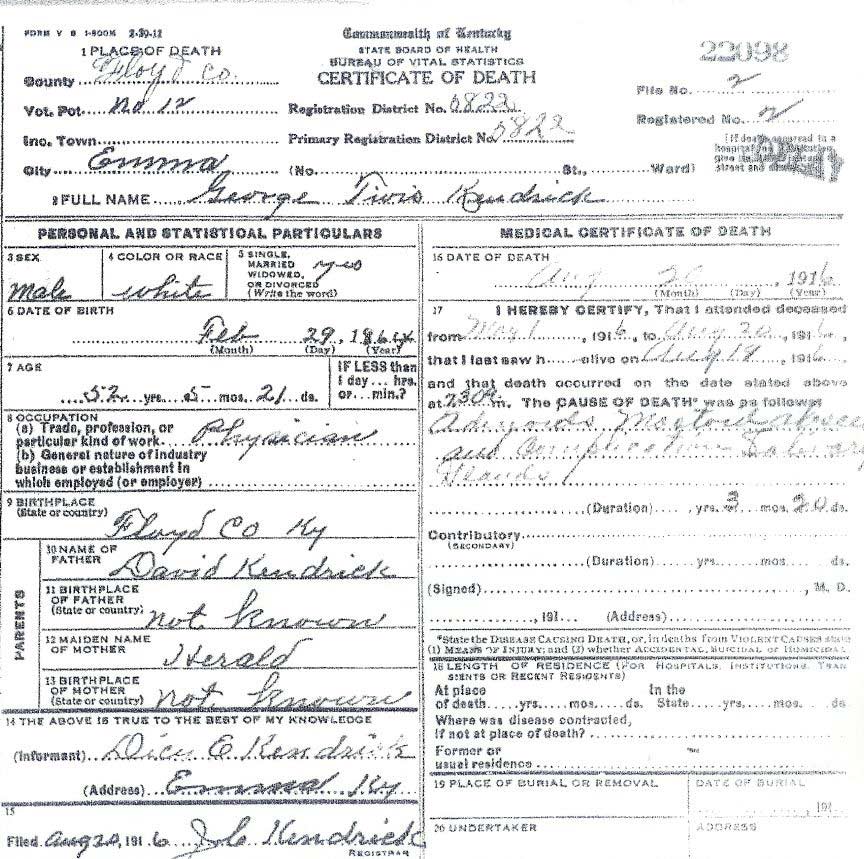 FORM V S 1-500M 2-29-12
Commonwealth of Kentucky
STATE BOARD OF HEALTH
BUREAU OF VITAL STATISTICS
CERTIFICATE OF DEATH
22098
1 PLACE OF DEATH
County Floyd Co.
Vot. Pct. No 12
Registration District No. 5822
File No. 2
Inc. Town
Primary Registration District No 5822
Registered No. 2
City Emma (No. St., Ward)
2 FULL NAME George Kendrick
PERSONAL AND STATISTICAL PARTICULARS
3 SEX
Male
4 COLOR OR RACE
white
5 SINGLE, MARRIED WIDOWED, OR DIVORCED (Write the word)
yes
6 DATE OF BIRTH
Feb 29, 1864
(Month) (Day) (Year)
7 AGE
52 yrs. 5 mos. 21 ds.
IF LESS than
1 day ... hrs.
or ... min.?
8 OCCUPATION
(a) Trade, profession, or
particular kind of work Physician
(b) General nature of industry
business or establishment in
which employed (or employer)
9 BIRTHPLACE
(State or country)
Floyd Co Ky
PARENTS
10 NAME OF
FATHER
David Kendrick
11 BIRTHPLACE
OF FATHER
(State or country)
not known
12 MAIDEN NAME
OF MOTHER
Herald
13 BIRTHPLACE
OF MOTHER
(State or country)
not known
14 THE ABOVE IS TRUE TO THE BEST OF MY KNOWLEDGE
(Informant) E Kendrick
(Address) Emma Ky
15
Filed Aug 20, 1916 J C Kendrick
REGISTRAR
MEDICAL CERTIFICATE OF DEATH
16 DATE OF DEATH
Aug 20, 1916
(Month) (Day) (Year)
17 I HEREBY CERTIFY, That I attended deceased
from May 1, 1916, to Aug 20, 1916,
that I last saw h alive on Aug 19, 1916
and that death occurred on the date stated above
at m. The CAUSE OF DEATH* was as follows
and Salivary
Glands
(Duration) yrs. 3 mos. 20 ds.
Contributory
(SECONDARY)
(Duration) yrs. mos. ds.
(Signed) , M. D.
, 191 (Address)
*State the DISEASE CAUSING DEATH, or, in deaths from VIOLENT CAUSES state
(1) MEANS OF INJURY; and (2) whether ACCIDENTAL, SUICIDAL or HOMICIDAL
18 LENGTH OF RESIDENCE (FOR HOSPITALS, INSTITUTIONS, TRAN
SIENTS OR RECENT RESIDENTS)
At place In the
of death yrs. mos. ds. State yrs. mos. ds
Where was disease contracted,
if not at place of death?
Former or
usual residence
19 PLACE OF BURIAL OR REMOVAL
DATE OF BURIAL
191
20 UNDERTAKER
ADDRESS